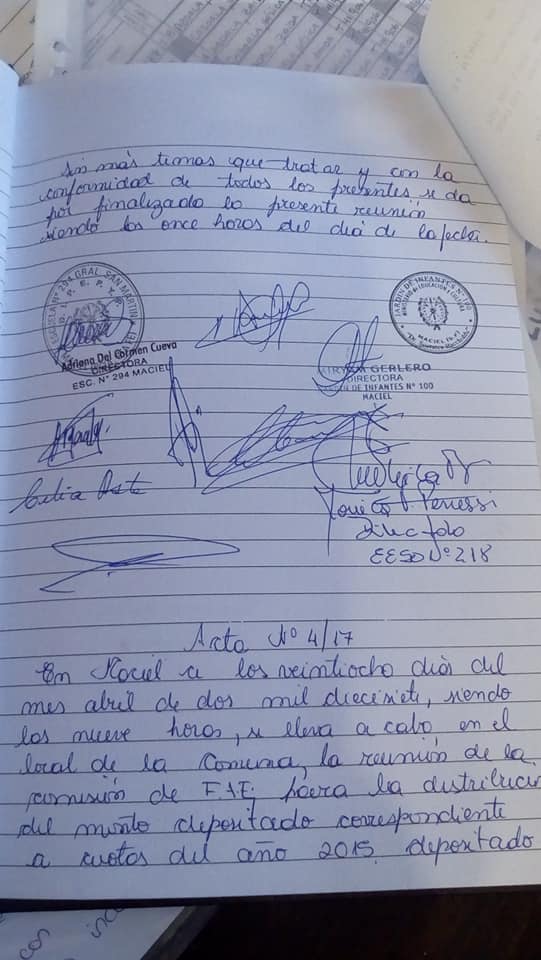 Sin más temas que tratar y con la
conformidad de todos los presentes se da
por finalizada la presente reunión
siendo las once horas del día de la fecha.
ESCUELA Nº 294 GRAL. SAN MARTIN
D. P. E. P.
Adriana Del Carmen Cueva
DIRECTORA
ESC. Nº 294 MACIEL
JARDIN DE INFANTES Nº 100
MINISTERIO DE EDUCACION Y CULTURA
MACIEL
GERLERO
DIRECTORA
DE INFANTES Nº 100
MACIEL
Celia
EESO Nº 218
Acta Nº 4/17
En Maciel a los veintiocho días del
mes abril de dos mil diecisiete, siendo
las nueve horas, se lleva a cabo, en el
local de la Comuna, la reunión de la
comisión de FAE, para la distribuci
del monto depositado correspondiente
a cuotas del año 2015 depositado